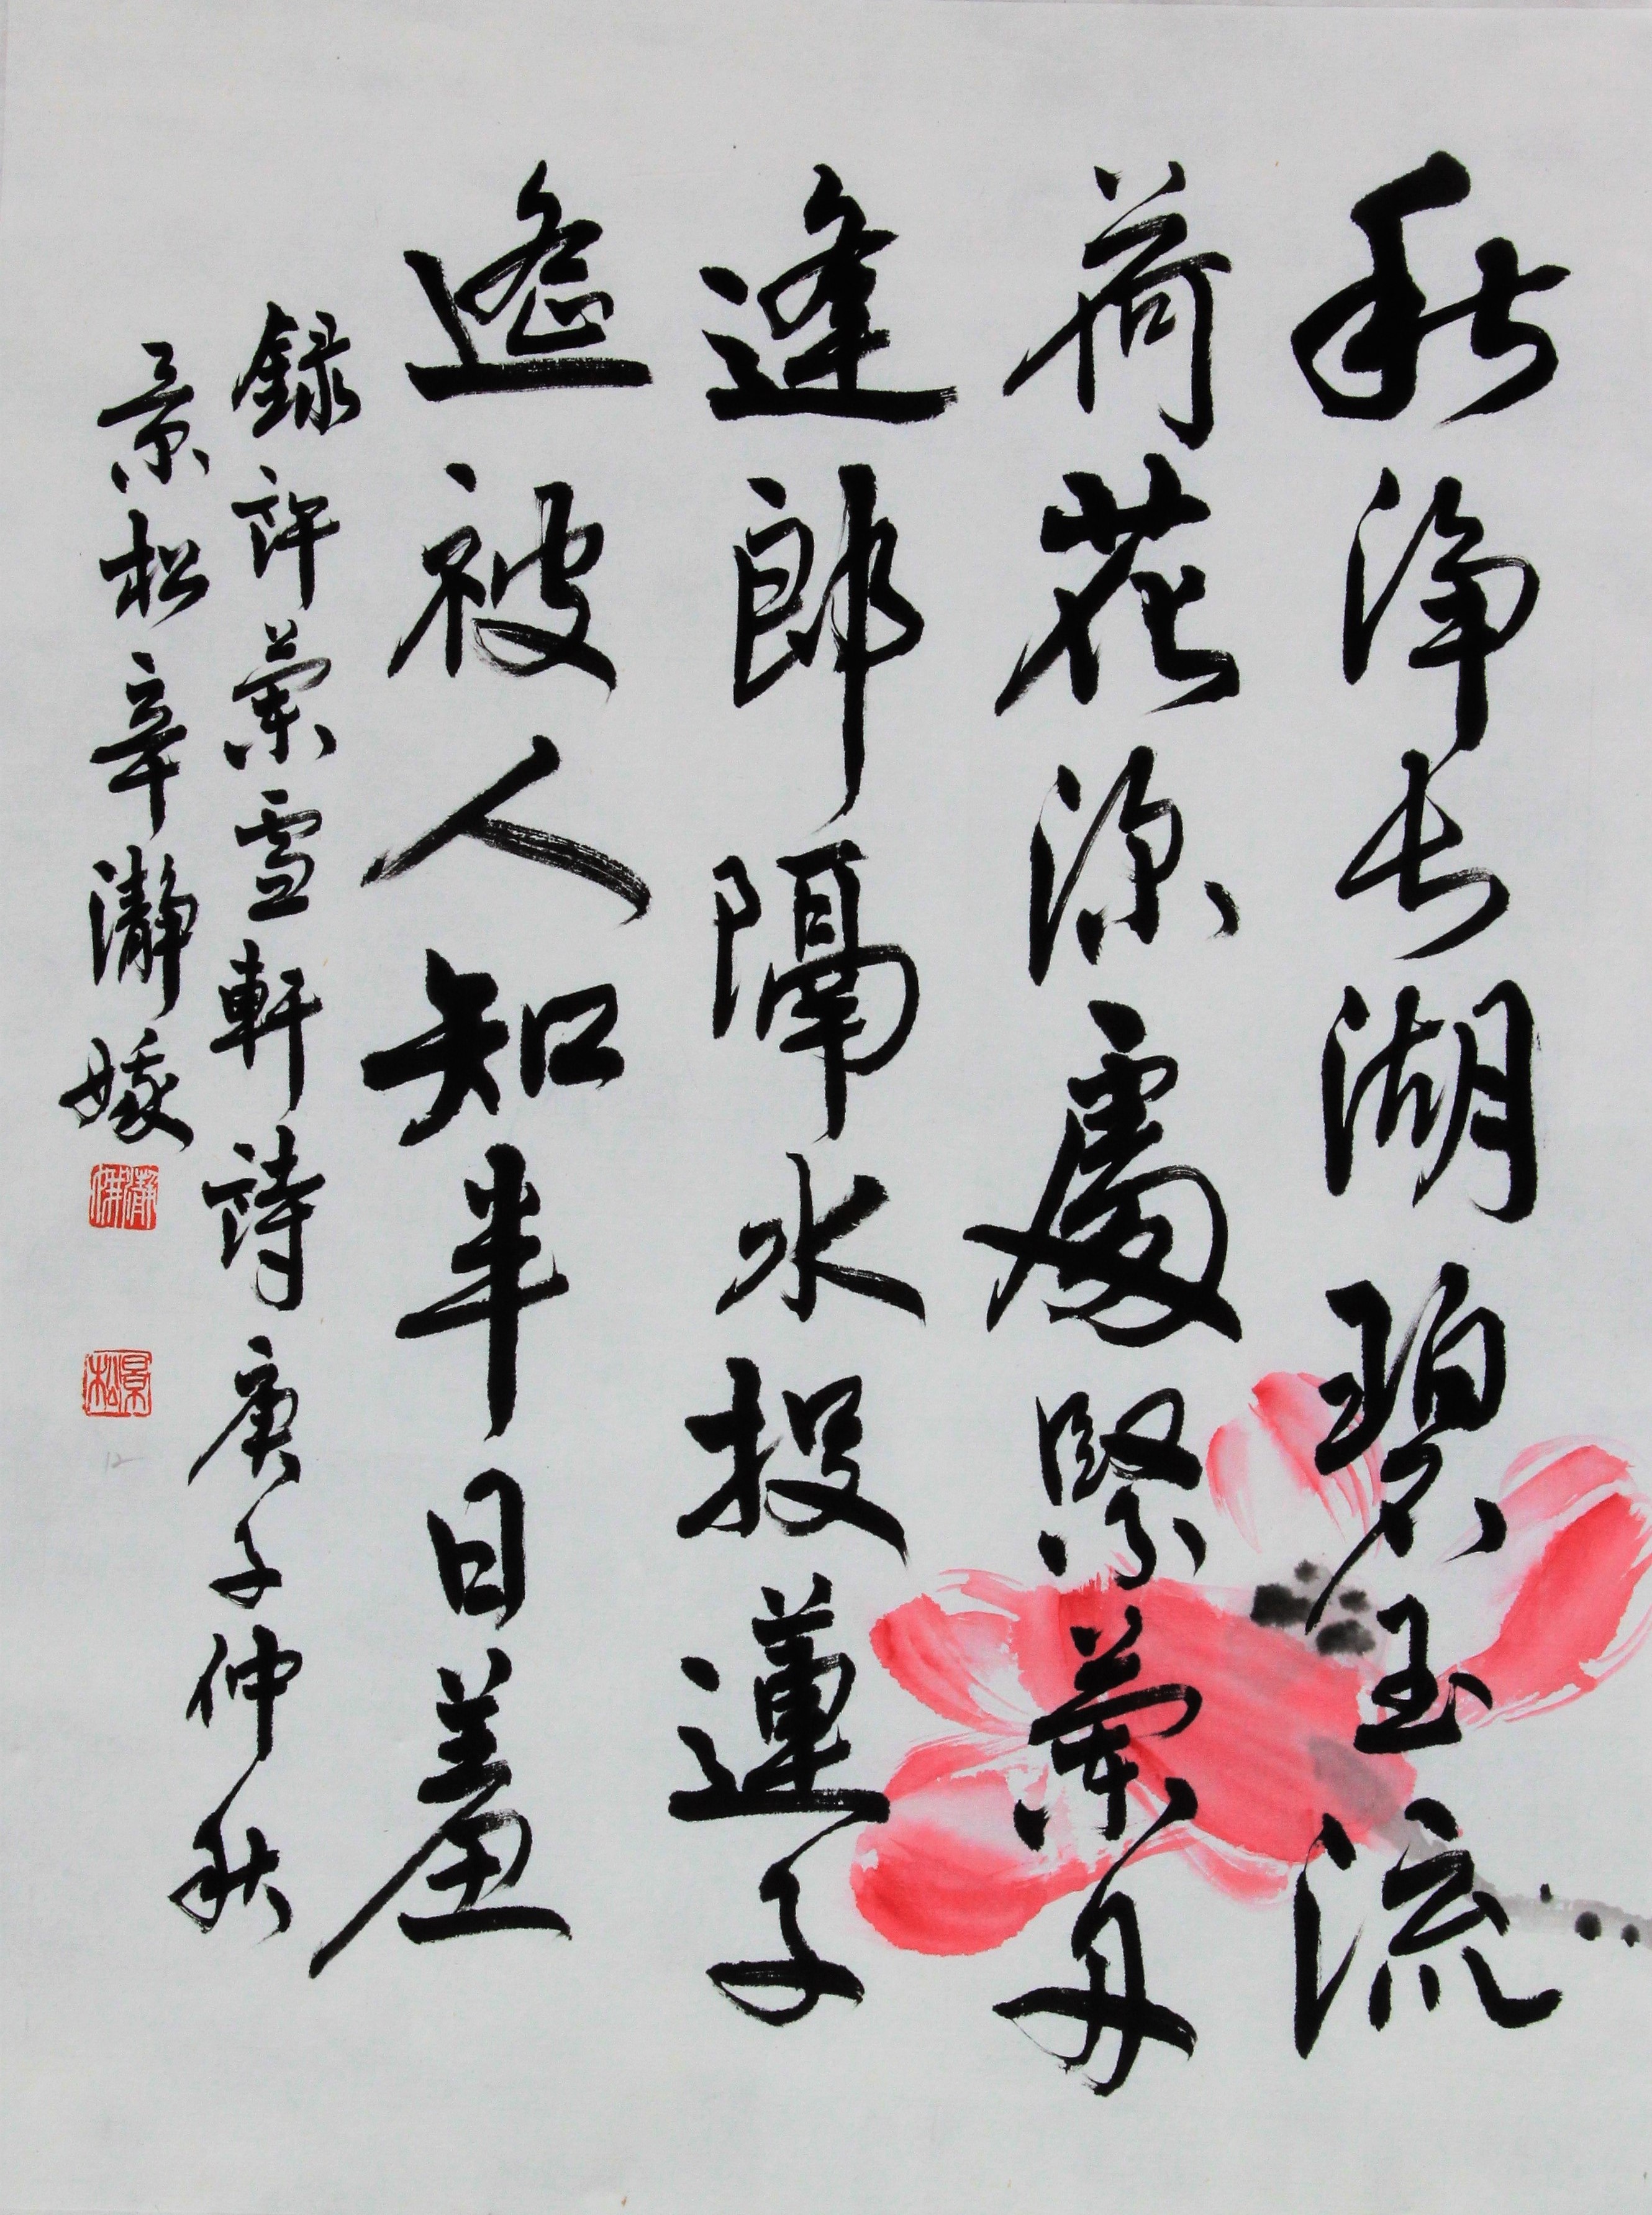 秋淨長湖碧玉流
荷花深處繫蘭舟
逢郎隔水投蓮子
遙被人知半日羞
錄許蘭雪軒詩 庚子仲秋
景松 辛瀞媛
瀞媛
景松
12